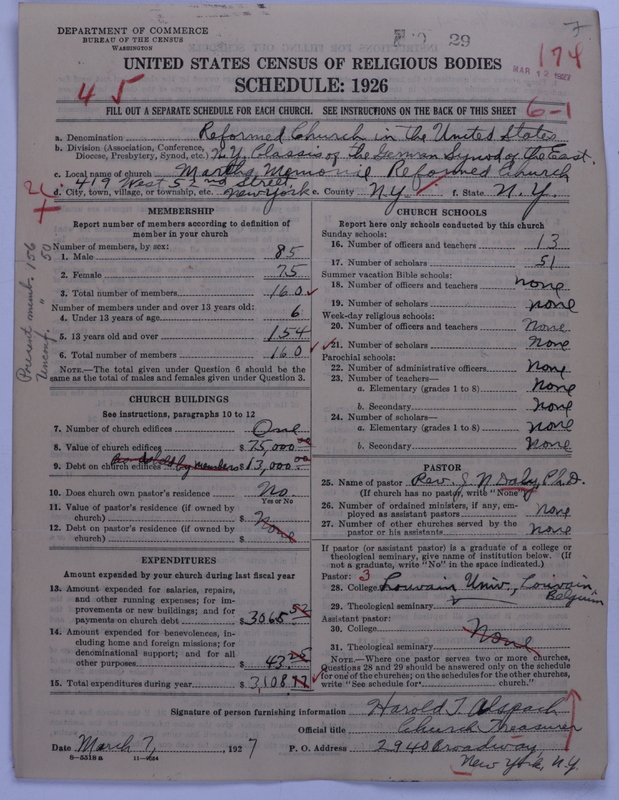 DEPARTMENT OF COMMERCE
BUREAU OF THE CENSUS
WASHINGTON
29
7
174
MAR 12 1927
UNITED STATES CENSUS OF RELIGIOUS BODIES
SCHEDULE: 1926
45
FILL OUT A SEPARATE SCHEDULE FOR EACH CHURCH. SEE INSTRUCTIONS ON THE BACK OF THIS SHEET
6-1
a. Denomination Reformed Church in the United States
b. Division (Association, Conference, Diocese, Presbytery, Synod, etc.) N.Y. Classis of the German Synod of the East.
c. Local name of church Martha Memorial Reformed Church
419 West 52nd Street,
d. City, town, village, or township, etc. New York e. County N.Y. f. State N.Y.
Present memb. 156
Unconf. " 50
MEMBERSHIP
Report number of members according to definition of
member in your church
Number of members, by sex:
1. Male 85
2. Female 75
3. Total number of members 160
Number of members under and over 13 years old:
4. Under 13 years of age 6
5. 13 years old and over 154
6. Total number of members 160
NOTE.—The total given under Question 6 should be
same as the total of males and females given under Question 3.
CHURCH BUILDINGS
See instructions, paragraphs 10 to 12
7. Number of church edifices One
8. Value of church edifices $ 75,000.00
9. Debt on church edifices held by members $ 13,000.00
10. Does church own pastor's residence No.
Yes or No
11. Value of pastor's residence (if owned by
church) $ None
12. Debt on pastor's residence (if owned by
church) $
EXPENDITURES
Amount expended by your church during last fiscal year
13. Amount expended for salaries, repairs,
and other running expenses; for im-
provements or new buildings; and for
payments on church debt $ 3065.52
14. Amount expended for benevolences, in-
cluding home and foreign missions; for
denominational support; and for all
other purposes $ 43.
15. Total expenditures during year $ 3,108.
CHURCH SCHOOLS
Report here only schools conducted by this church
Sunday schools:
16. Number of officers and teachers 13
17. Number of scholars 51
Summer vacation Bible schools:
18. Number of officers and teachers none.
19. Number of scholars none
Week-day religious schools:
20. Number of officers and teachers None
21. Number of scholars None
Parochial schools:
22. Number of administrative officers None
23. Number of teachers—
a. Elementary (grades 1 to 8) None
b. Secondary None
24. Number of scholars—
a. Elementary (grades 1 to 8) none
b. Secondary None
PASTOR
25. Name of pastor Rev. J. N. Ph.D.
(If church has no pastor, write "None")
26. Number of ordained ministers, if any, em-
ployed as assistant pastors None
27. Number of other churches served by the
pastor or his assistants None
If pastor (or assistant pastor) is a graduate of a college or
theological seminary, give name of institution below. (If
not a graduate, write "No" in the space indicated.)
Pastor: 3
28. College Louvain Univ., Louvain, Belgium
29. Theological seminary
Assistant pastor:
30. College None
31. Theological seminary
NOTE.—Where one pastor serves two or more churches,
Questions 28 and 29 should be answered only on the schedule
for one of the churches; on the schedules for the other churches,
write "See schedule for church."
Signature of person furnishing information Harold T. Alspach
Official title Church Treasurer
Date March 7, 1927 P. O. Address 2940 Broadway,
8—5518 a 11—7064 New York, N.Y.